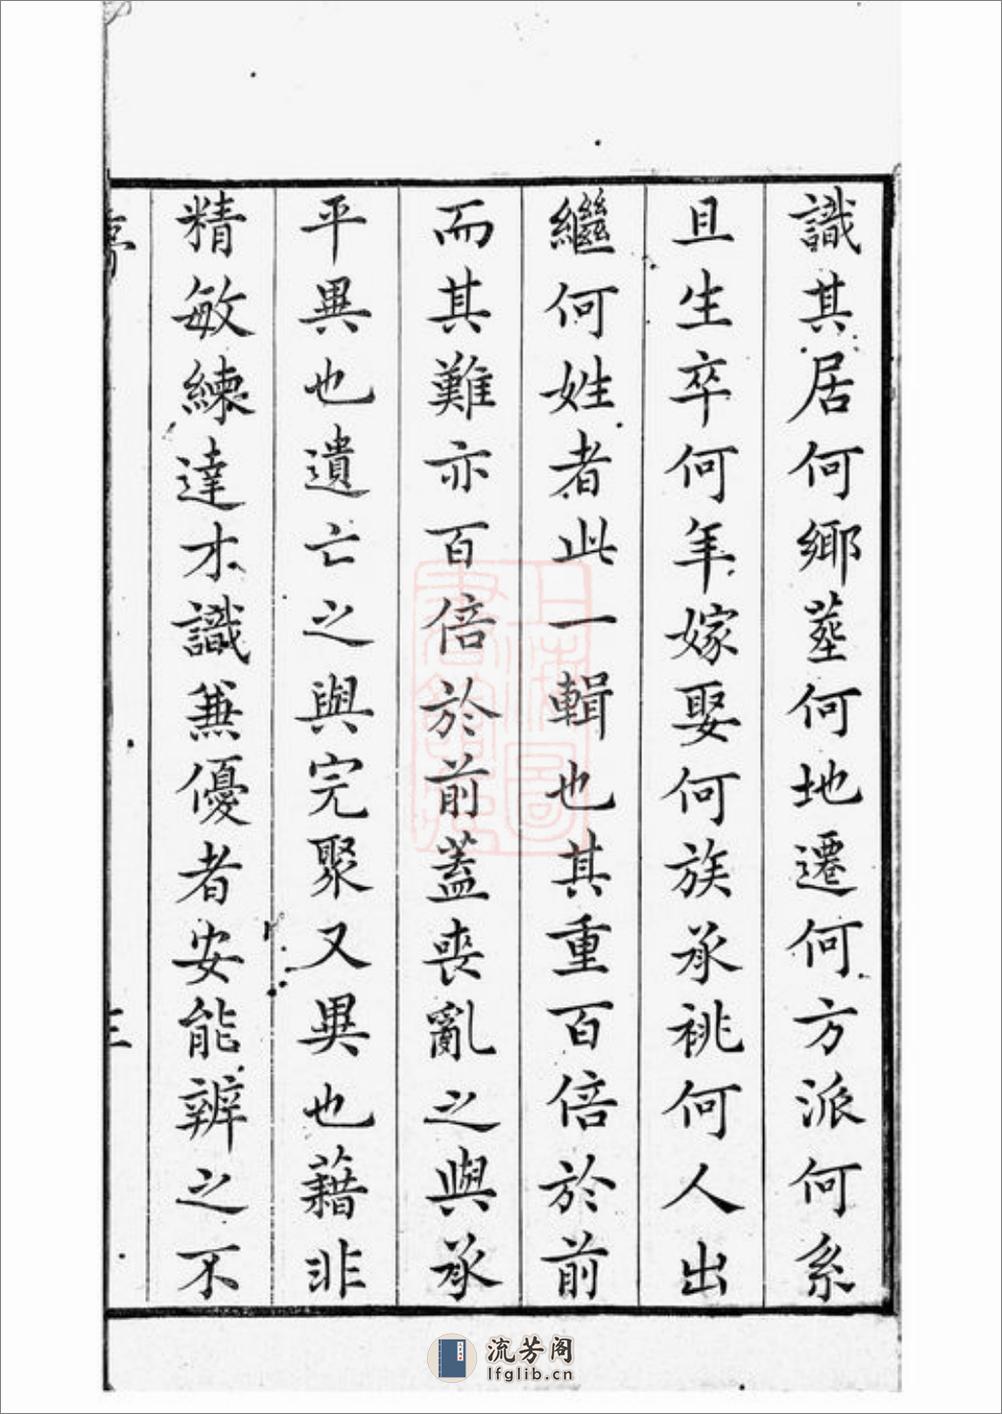 識其居何鄉塟何地遷何方派何系
且生卒何年嫁娶何族承祧何人出
繼何姓者此一輯也其重百倍於前
而其難亦百倍於前蓋喪亂之與承
平異也遺亡之與完聚又異也藉非
精敏練達才識兼優者安能辨之不
上海圖書館藏
流芳阁
lfglib.cn